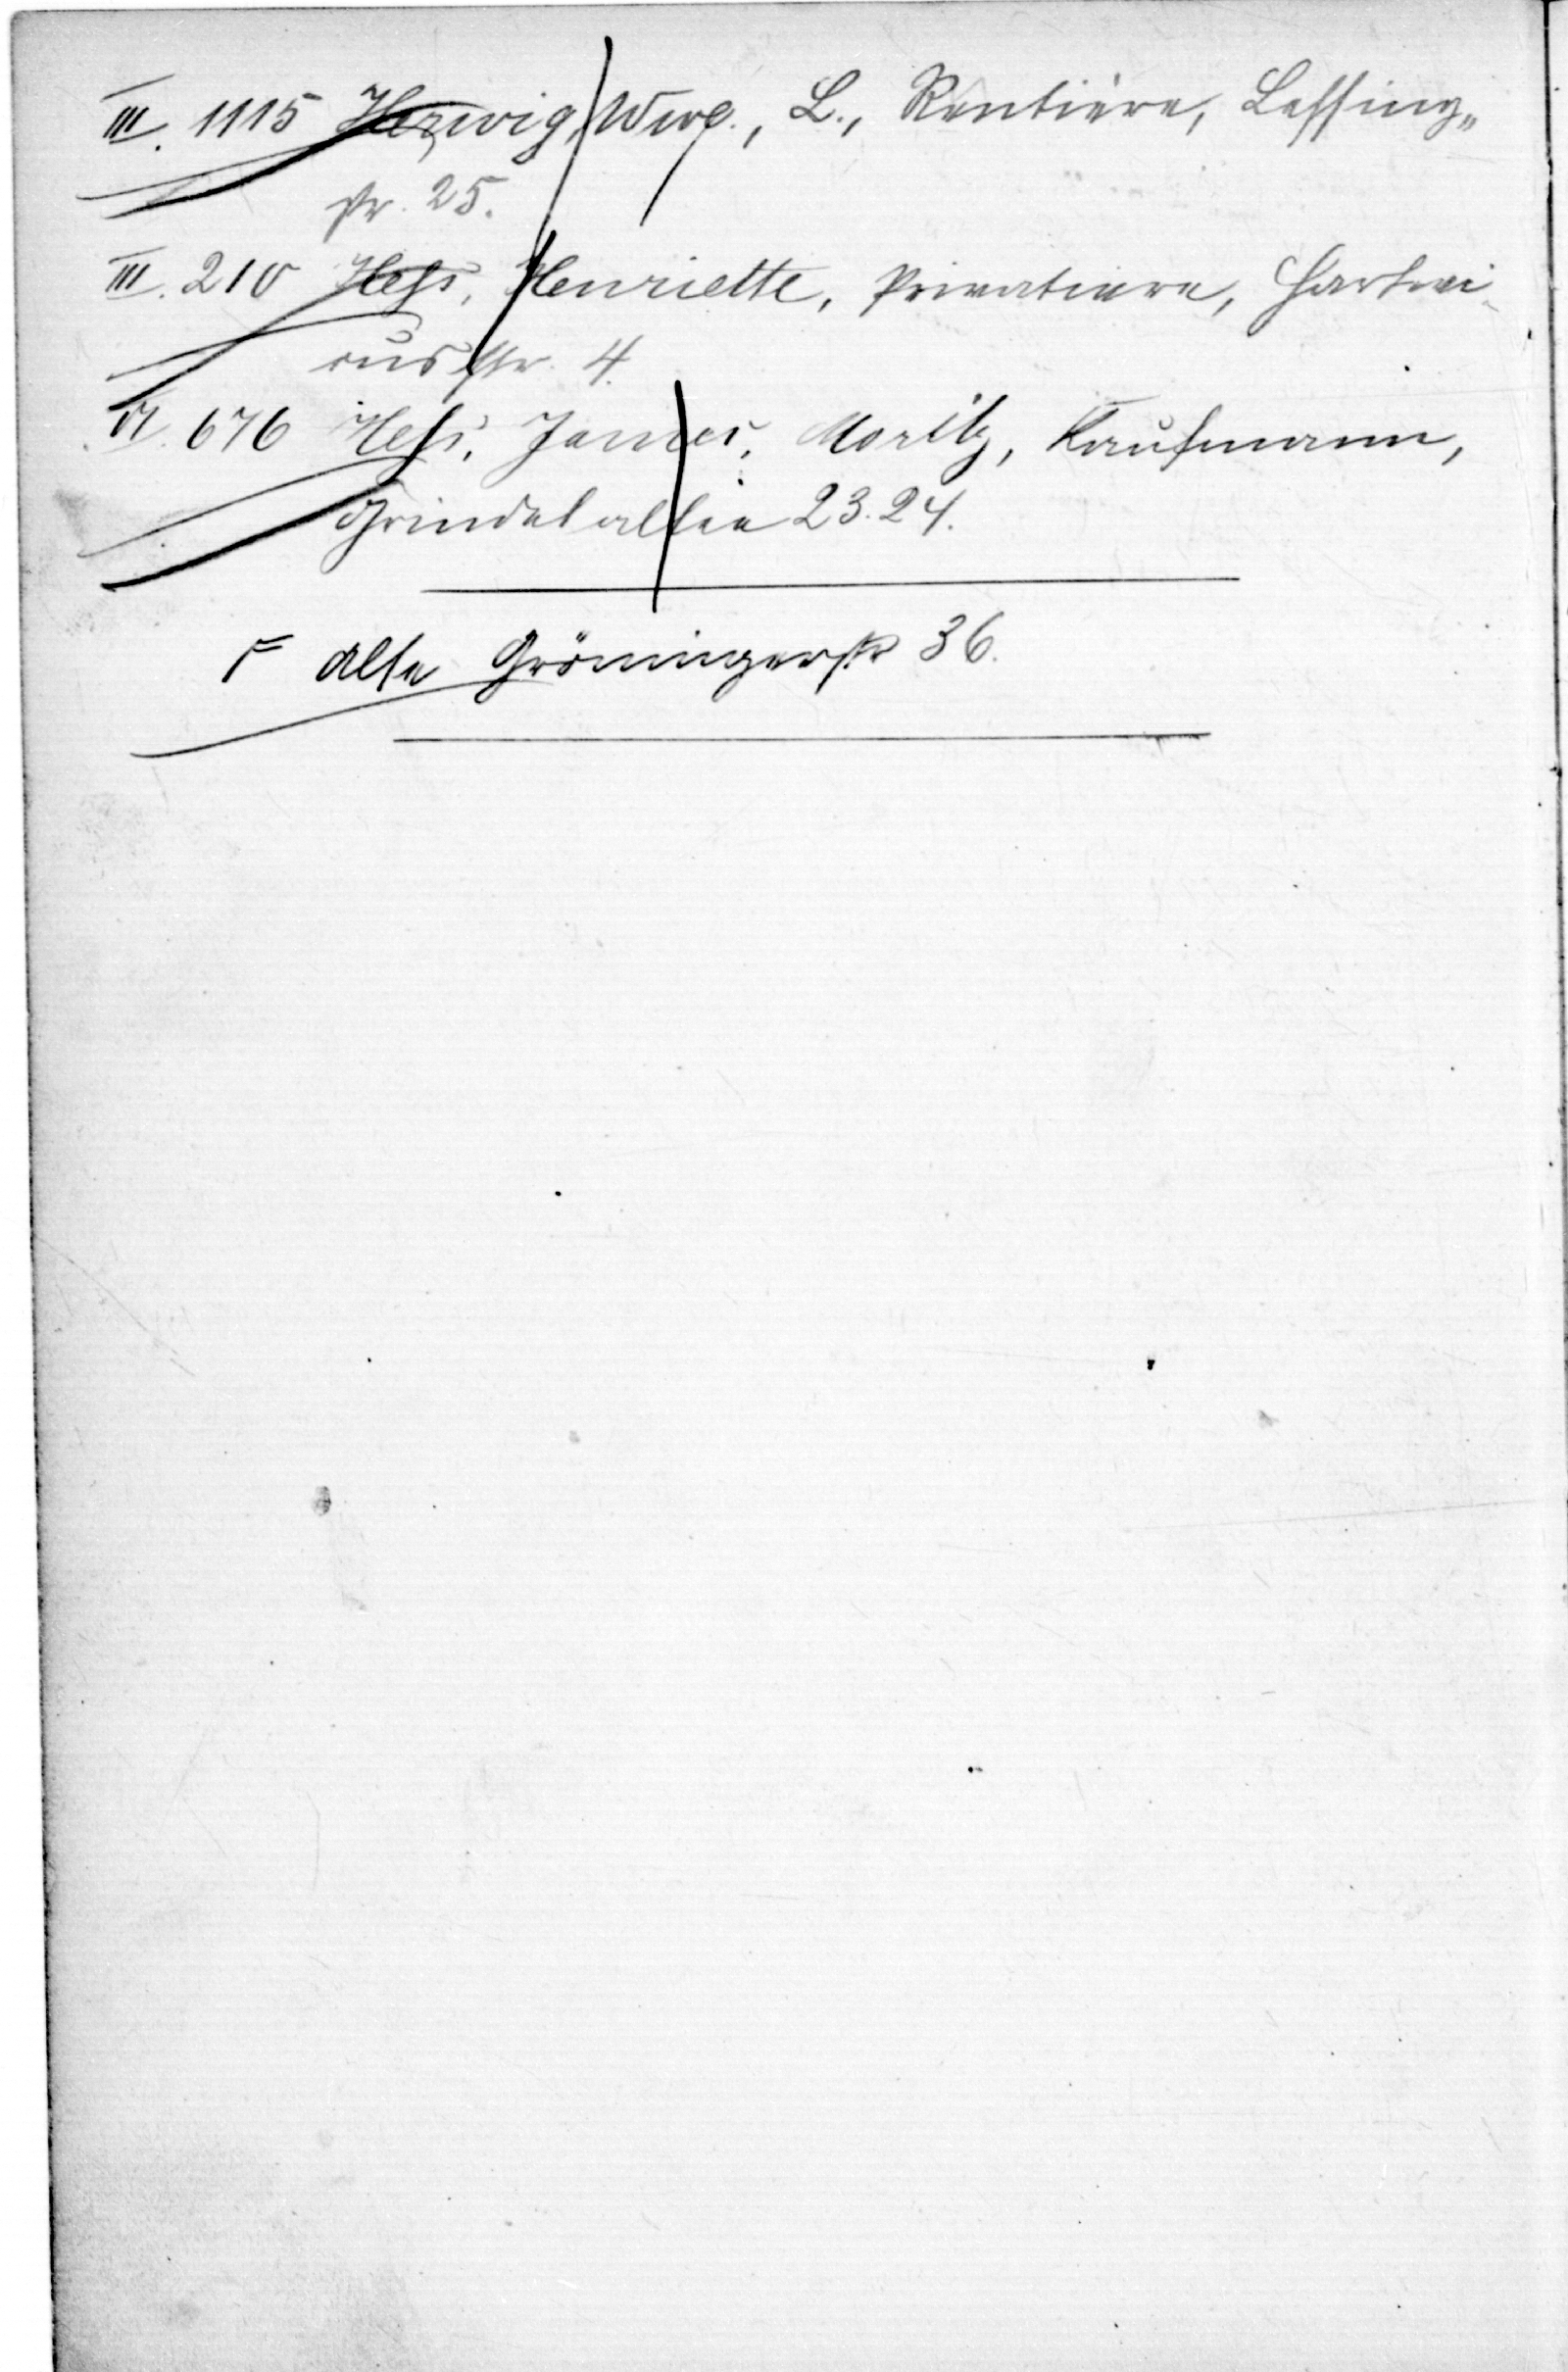 III. 1115 Herwig, Wwe., L., Rentière, Lessing„
str. 25.
III. 210 Hess, Henriette, Privatiere, Hartwi-
cusstr. 4.
VI. 676 Hess, James, Moritz, Kaufmann,
Grindelallee 23.24.
F alte Gröningerstr 36.